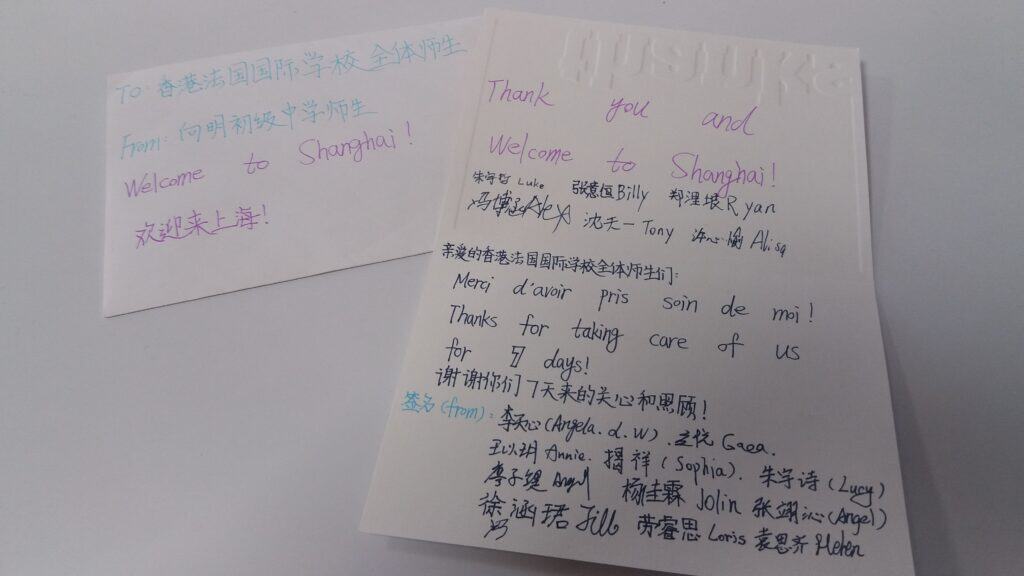 TO: 香港法国国际学校全体师生
From: 向明初级中学师生
Welcome to Shanghai!
欢迎来上海!
Thank you and
Welcome to Shanghai!
Luke Billy Ryan
冯博 Alex 沈天一 Tony Alisa
亲爱的香港法国国际学校全体师生们:
Merci d'avoir pris soin de moi!
Thanks for taking care of us
for 7 days!
谢谢你们7天来的关心和照顾!
签名(from): 李天心(Angela.d.W). Gaea.
王以玥 Annie. 祥(Sophia). 朱字诗(Lucy)
李子缇 Angel 杨佳霖 Jolin 张翊沁(Angel)
徐涵珺 Jill 劳睿思 Loris 袁思齐 Helen